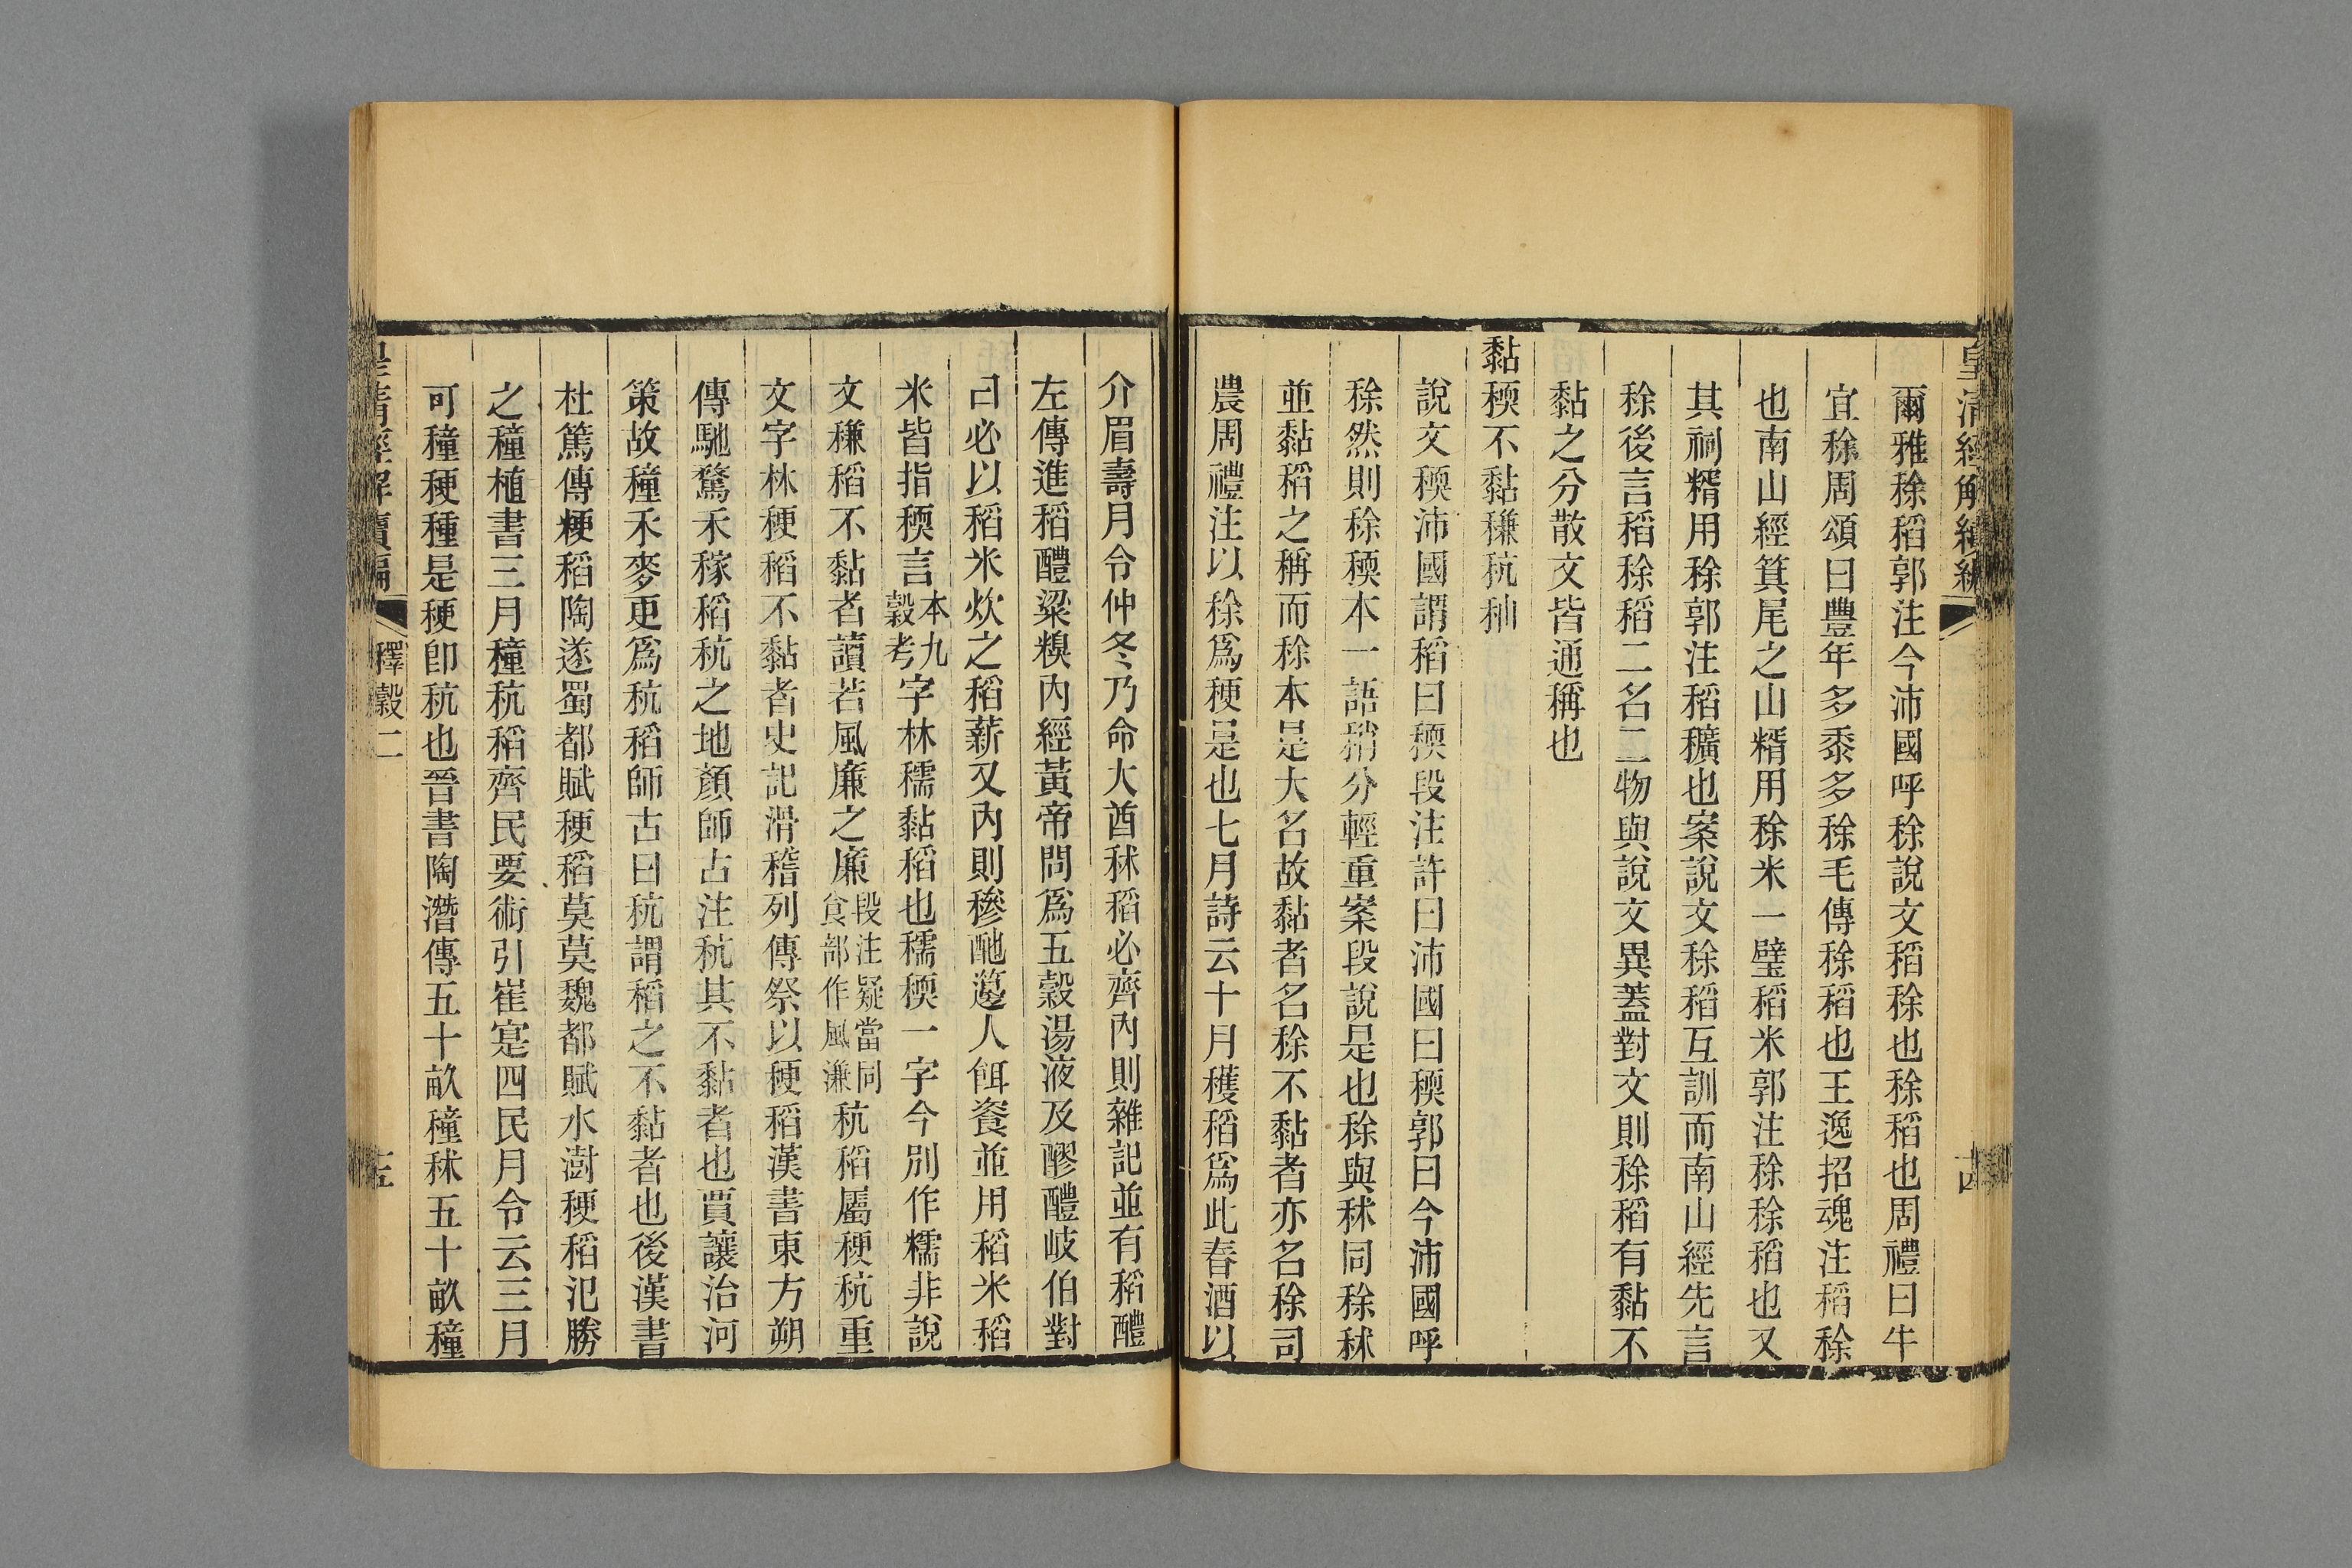 皇清經解續編
十四
爾雅稌稻郭注今沛國呼稌說文稻稌也稌稻也周禮曰牛
宜稌周頌曰豐年多黍多稌毛傳稌稻也王逸招魂注稻稌
也南山經箕尾之山糈用稌米一璧稻米郭注稌稌稻也又
其祠糈用稌郭注稻穬也案說文稌稻互訓而南山經先言
稌後言稻稌稻二名二物與說文異蓋對文則稌稻有黏不
黏之分散文皆通稱也
黏稬不黏稴秔秈
說文稬沛國謂稻曰稬段注許曰沛國曰稬郭曰今沛國呼
稌然則稌稬本一語稍分輕重案段說是也稌與秫同稌秫
並黏稻之稱而稌本是大名故黏者名稌不黏者亦名稌司
農周禮注以稌爲稉是也七月詩云十月穫稻爲此春酒以
介眉壽月令仲冬乃命大酋秫稻必齊內則雜記並有稻醴
左傳進稻醴粱糗內經黃帝問爲五穀湯液及醪醴岐伯對
曰必以稻米炊之稻薪又內則糝酏籩人餌餈並用稻米稻
米皆指稬言本九穀考字林穤黏稻也穤稬一字今別作糯非說
文稴稻不黏者讀若風廉之廉段注疑當同食部作風溓秔稻屬稉秔重
文字林稉稻不黏者史記滑稽列傳祭以稉稻漢書東方朔
傳馳騖禾稼稻秔之地顏師古注秔其不黏者也賈讓治河
策故種禾麥更爲秔稻師古曰秔謂稻之不黏者也後漢書
杜篤傳粳稻陶遂蜀都賦稉稻莫莫魏都賦水澍稉稻氾勝
之種植書三月種秔稻齊民要術引崔寔四民月令云三月
可穜稉種是稉卽秔也晉書陶潛傳五十畝穜秫五十畝穜
皇清經解續編
釋穀二
十五